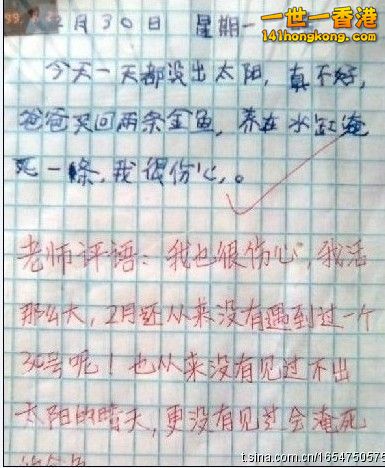 一世一香港
141hongkong.com
2月30日 星期一
今天一天都没出太阳,真不好,
爸爸买回两条金鱼,养在水缸淹
死一條,我很伤心。
老师评语:我也很伤心,我活
那么大,2月还从来没有遇到过一个
30号呢!也从来没有见过不出
太阳的晴天,更没有见过会淹死
的金鱼
t.sina.com.cn/1654750575